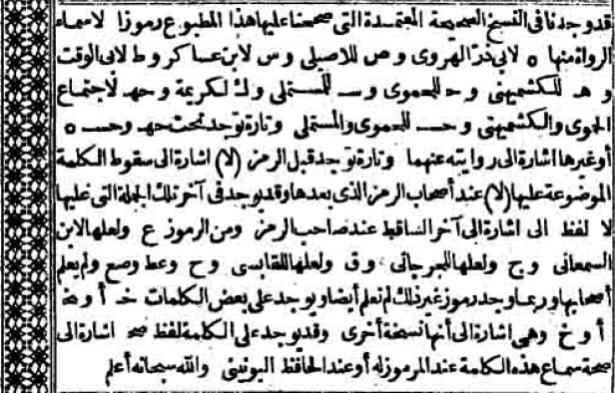 قد وجدنا في النسخ الصحيحة المعتمدة التي صححنا عليها هذا المطبوع رموزا لاسماء
الرواة منها ه لابي ذر الهروي و ص للاصيلي و س لابن عساكر و ط لابي الوقت
و هـ للكشميهني و حـ للحموي و سـ للمستملي و ك لكريمة و حهـ لاجتماع
الحموي والكشميهني و حسـ للحموي والمستملي وتارة توجد تحت حهـ و حسـ ه
أو غيرها اشارة الى روايته عنهما وتارة توجد قبل الرمز (لا) اشارة الى سقوط الكلمة
الموضوعة عليها (لا) عند أصحاب الرمز الذي بعدها وقد يوجد في آخر تلك الجملة التي عليها
لا لفظ الى اشارة الى آخر الساقط عند صاحب الرمز ومن الرموز ع ولعلها لابن
السمعاني و ج ولعلها للجرجاني و ق ولعلها للقابسي و ح و عط و صع ولم يعلم
أصحابها وربما وجد رموز غير ذلك لم نعلم أيضا ويوجد على بعض الكلمات خـ أو
أو خ وهي اشارة الى أنها نسخة أخرى وقد يوجد على الكلمة لفظ صح اشارة الى
صحة سماع هذه الكلمة عند المرموز له أو عند الحافظ اليونيني والله سبحانه أعلم